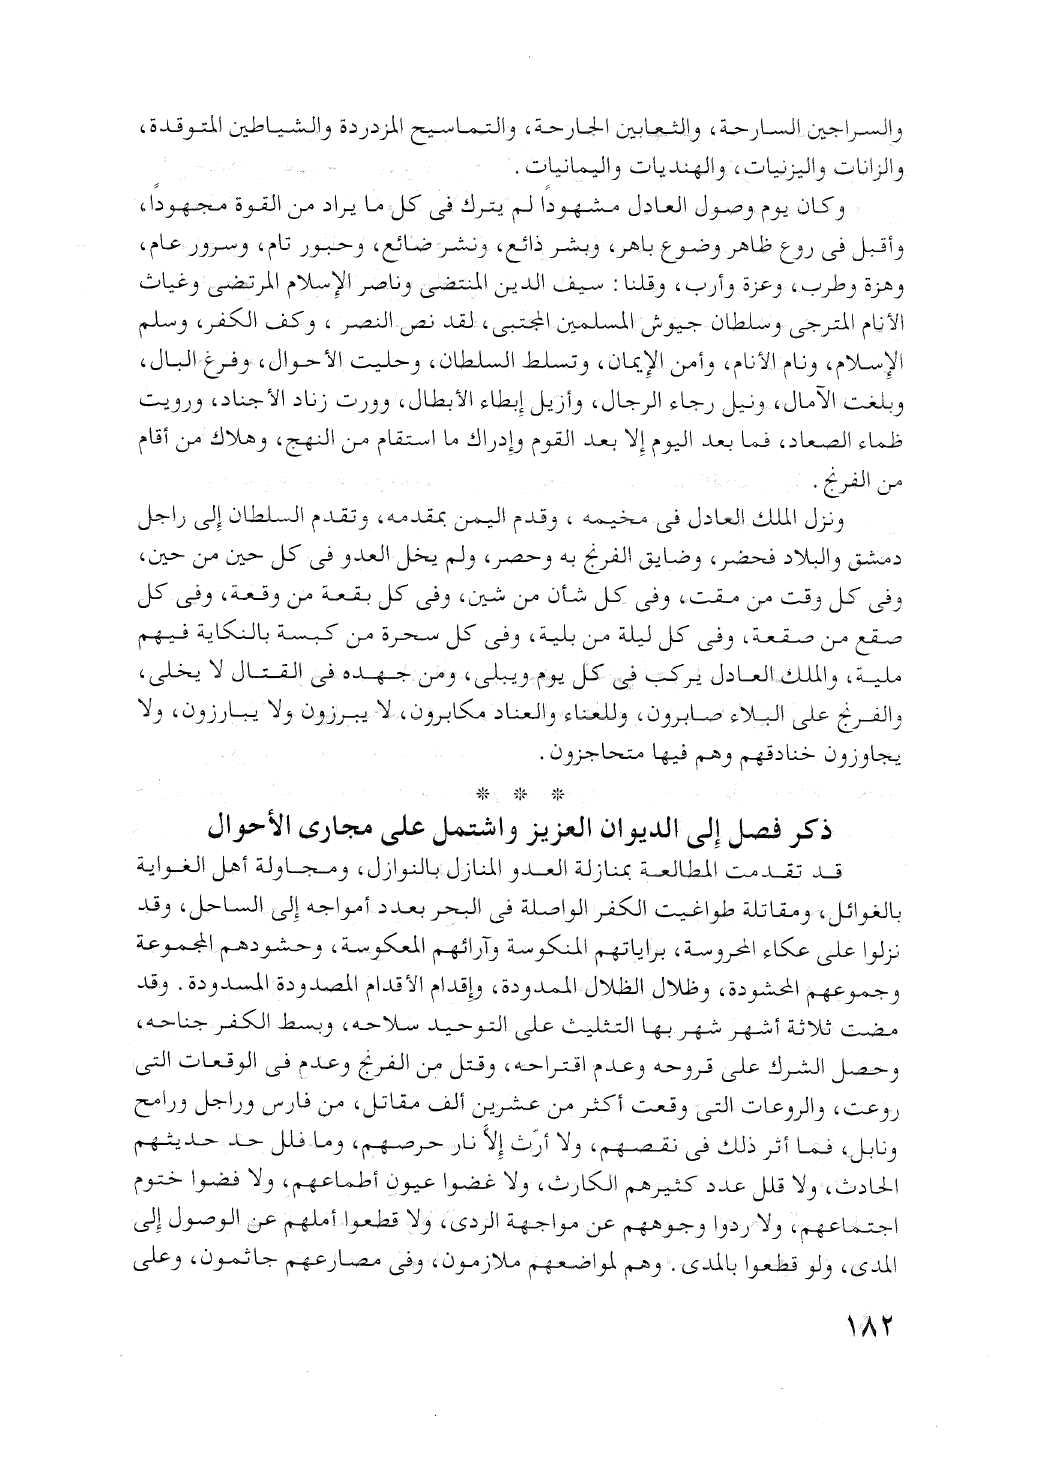 والسراجين السارحة، والثعابين الجارحة، والتماسيح المزدردة والشياطين المتوقدة،
والزانات واليزنيات، والهنديات واليمانيات .
وكان يوم وصول العادل مشهوداً لم يترك فى كل ما يراد من القوة مجهوداً،
وأقبل فى روع ظاهر وضوع باهر، وبشر ذائع، ونشر ضائع، وحبور تام، وسرور عام،
وهزة وطرب، وعزة وأرب، وقلنا : سيف الدين المنتضى وناصر الإسلام المرتضى وغياث
الأنام المترجى وسلطان جيوش المسلمين المجتبى، لقد نص النصر ، وكف الكفر، وسلم
الإسلام، ونام الأنام، وأمن الإيمان، وتسلط السلطان، وحليت الأحوال، وفرغ البال،
وبلغت الآمال، ونيل رجاء الرجال، وأزيل إبطاء الأبطال، وورت زناد الأجناد، ورويت
ظماء الصعاد، فما بعد اليوم إلا بعد القوم وإدراك ما استقام من النهج، وهلاك من أقام
من الفرنج .
ونزل الملك العادل فى مخيمه ، وقدم اليمن بمقدمه، وتقدم السلطان إلى راجل
دمشق والبلاد فحضر، وضايق الفرنج به وحصر، ولم يخل العدو فى كل حين من حين،
وفى كل وقت من مقت، وفى كل شأن من شين، وفى كل بقعة من وقعة، وفى كل
صقع من صقعة، وفى كل ليلة من بلية، وفى كل سحرة من كبسة بالنكاية فيهم
ملية، والملك العادل يركب فى كل يوم ويبلى، ومن جهده فى القتال لا يخلى،
والفرنج على البلاء صابرون، وللعناء والعناد مكابرون، لا يبرزون ولا يبارزون، ولا
يجاوزون خنادقهم وهم فيها متحاجزون .
* * *
ذكر فصل إلى الديوان العزيز واشتمل على مجارى الأحوال
قد تقدمت المطالعة بمنازلة العدو المنازل بالنوازل، ومحاولة أهل الغواية
بالغوائل، ومقاتلة طواغيت الكفر الواصلة فى البحر بعدد أمواجه إلى الساحل، وقد
نزلوا على عكاء المحروسة، براياتهم المنكوسة وآرائهم المعكوسة، وحشودهم المجموعة
وجموعهم المحشودة، وظلال الظلال الممدودة، وإقدام الأقدام المصدودة المسدودة . وقد
مضت ثلاثة أشهر شهر بها التثليث على التوحيد سلاحه، وبسط الكفر جناحه،
وحصل الشرك على قروحه وعدم اقتراحه، وقتل من الفرنج وعدم فى الوقعات التى
روعت، والروعات التى وقعت أكثر من عشرين ألف مقاتل، من فارس وراجل ورامح
ونابل، فما أثر ذلك فى نقصهم، ولا أرّث إلاَّ نار حرصهم، وما فلل حد حديثهم
الحادث، ولا قلل عدد كثيرهم الكارث، ولا غضوا عيون أطماعهم، ولا فضوا ختوم
اجتماعهم، ولا ردوا وجوههم عن مواجهة الردى، ولا قطعوا أملهم عن الوصول إلى
المدى، ولو قطعوا بالمدى . وهم لمواضعهم ملازمون، وفى مصارعهم جاثمون، وعلى
١٨٢